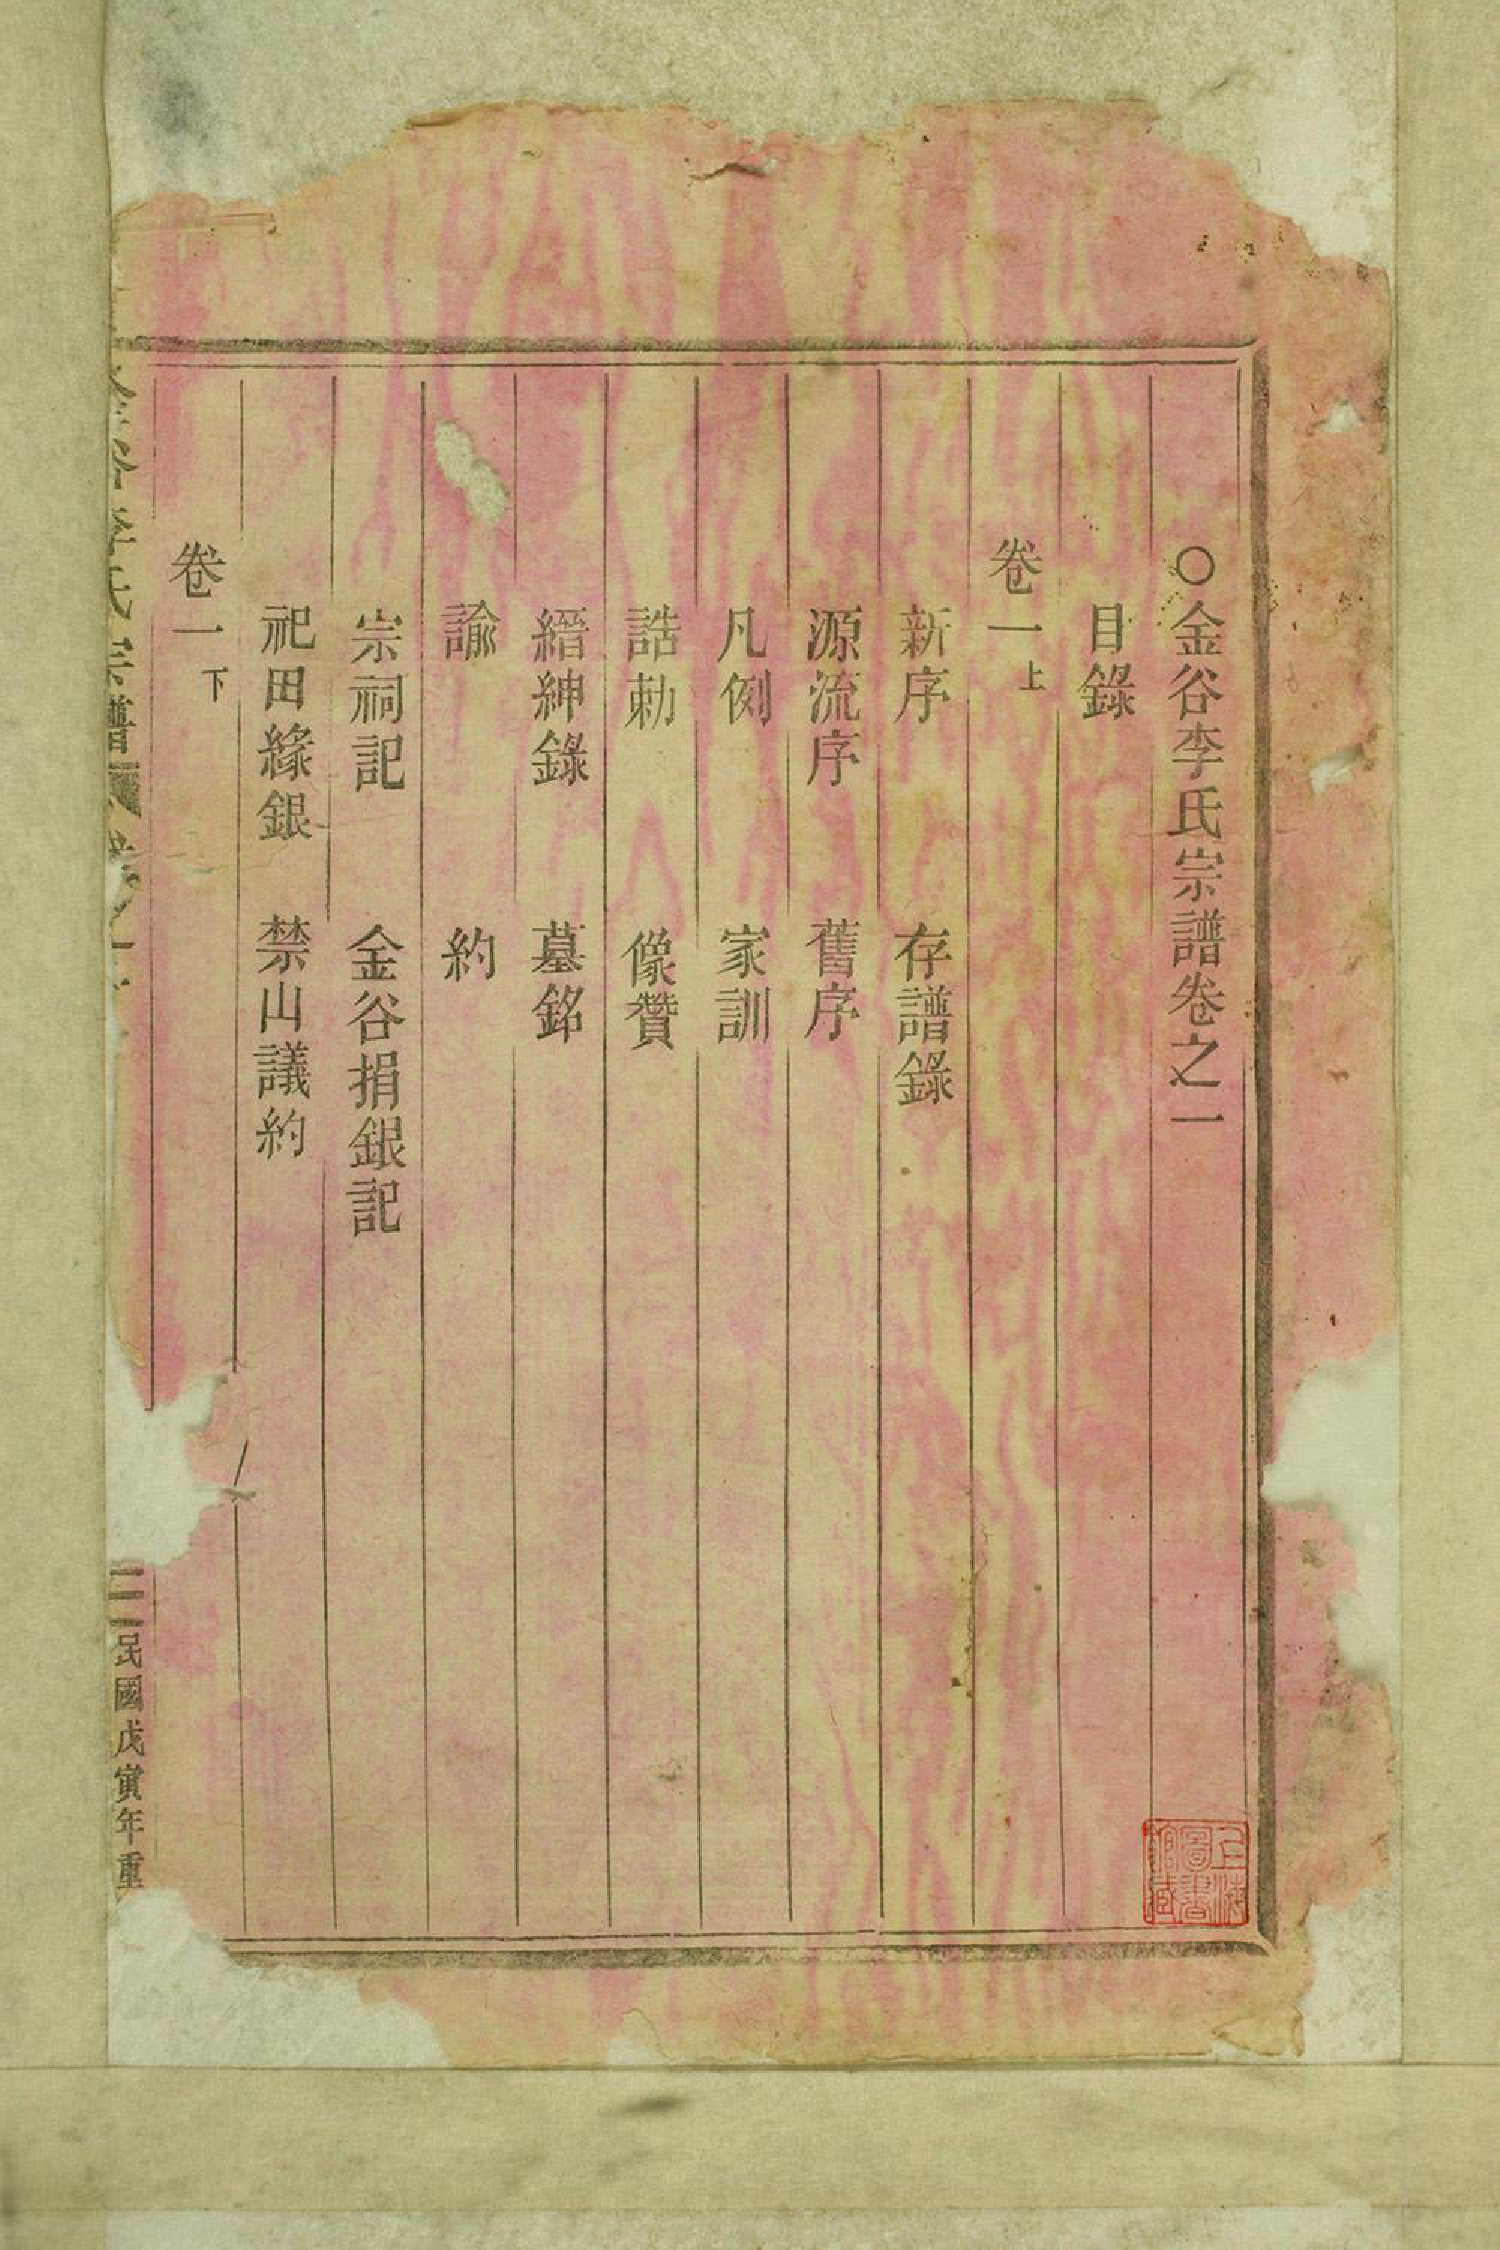 ○金谷李氏宗譜卷之一
目錄
卷一上
新序　存譜錄
源流序　舊序
凡例　家訓
誥勅　像贊
縉紳錄　墓銘
諭　約
宗祠記　金谷捐銀記
祀田緣銀　禁山議約
卷一下
金谷李氏宗譜　卷之一
民國戊寅年重
上海圖書館藏